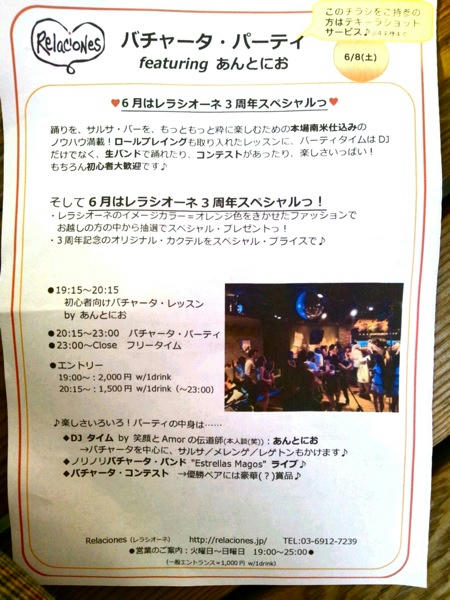 このチラシをご持参の
方はテキーラショット
サービス♪
Relaciones
バチャータ・パーティ
featuring あんとにお
6/8(土)
♥６月はレラシオーネ３周年スペシャルっ♥
踊りを、サルサ・バーを、もっともっと粋に楽しむための本場南米仕込みの
ノウハウ満載！ロールプレイングも取り入れたレッスンに、パーティタイムはDJ
だけでなく、生バンドで踊れたり、コンテストがあったり、楽しさいっぱい！
もちろん初心者大歓迎です♪
そして６月はレラシオーネ３周年スペシャルっ！
・レラシオーネのイメージカラー＝オレンジ色をきかせたファッションで
お越しの方の中から抽選でスペシャル・プレゼントっ！
・３周年記念のオリジナル・カクテルをスペシャル・プライスで♪
●19:15～20:15
初心者向けバチャータ・レッスン
by あんとにお
●20:15～23:00　バチャータ・パーティ
●23:00～Close　フリータイム
●エントリー
19:00～：2,000円 w/1drink
20:15～：1,500円 w/1drink（～23:00）
♪楽しさいろいろ！パーティの中身は……
◆DJ タイム by 笑顔とAmorの伝道師(本人談(笑))：あんとにお
→バチャータを中心に、サルサ／メレンゲ／レゲトンもかけます♪
◆ノリノリバチャータ・バンド "Estrellas Magos" ライブ♪
◆バチャータ・コンテスト　→優勝ペアには豪華(？)賞品♪
Relaciones（レラシオーネ）　http://relaciones.jp/　TEL:03-6912-7239
●営業のご案内：火曜日～日曜日　19:00～25:00●
（一般エントランス＝1,000円 w/1drink）